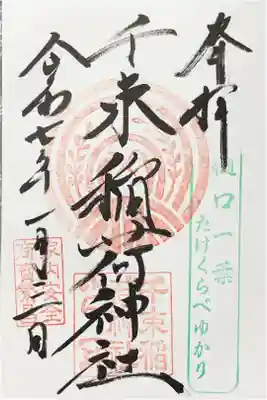 奉拝
樋口一葉
たけくらべゆかり
千束稲荷神社
令和七年一月三日
千束稲
家内安全